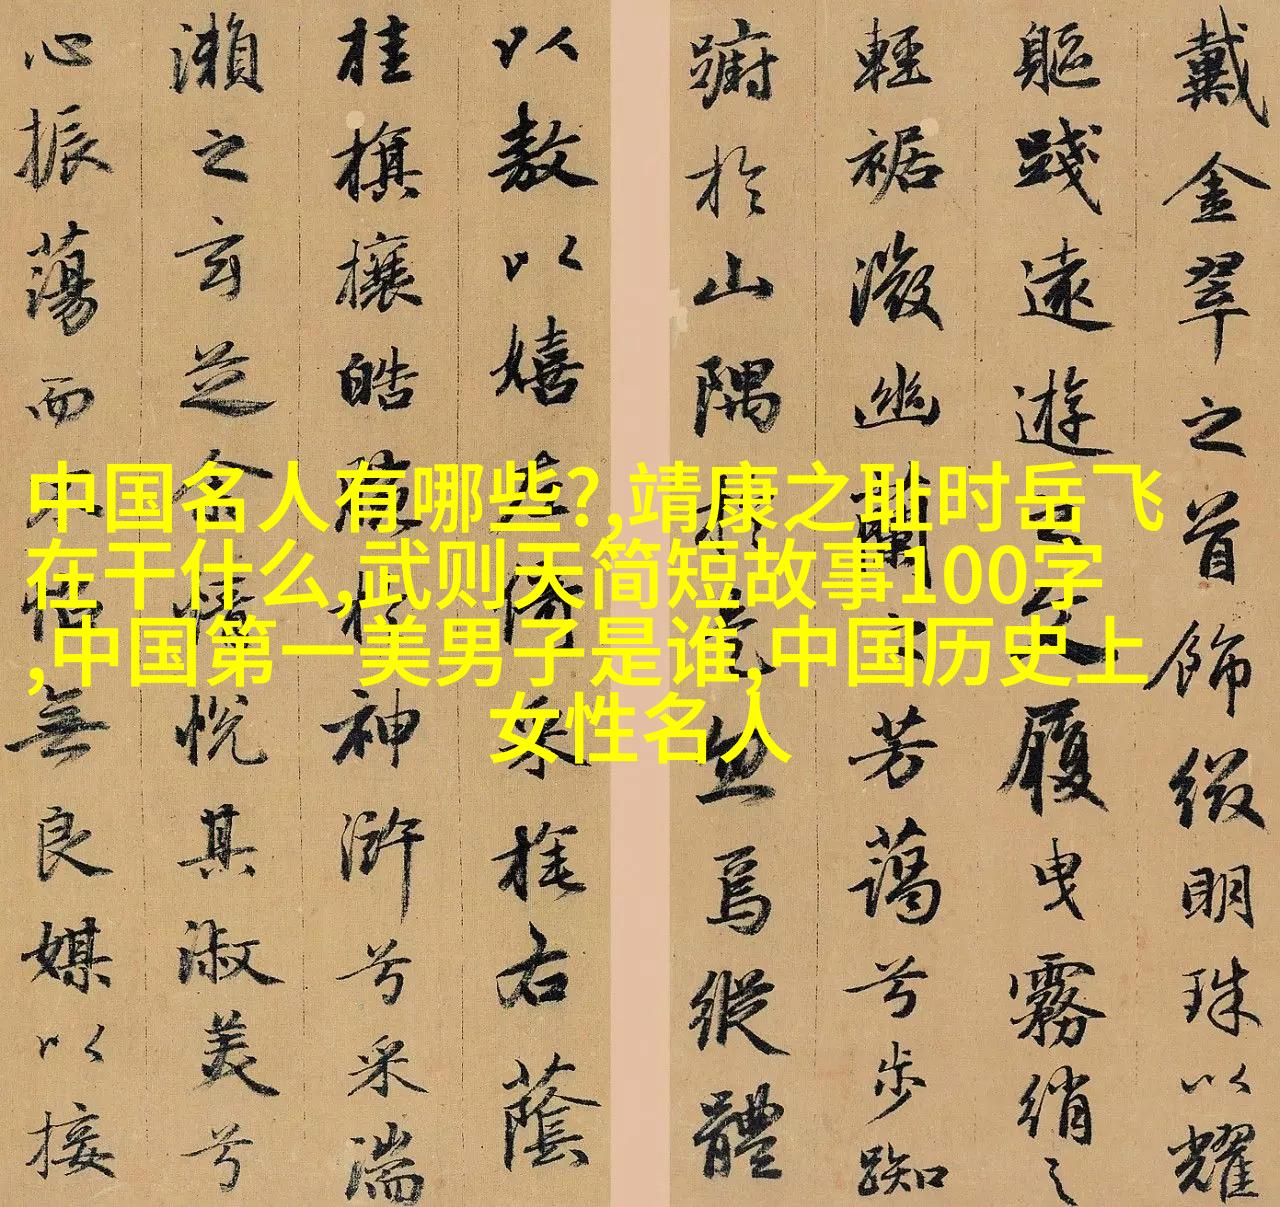 戴金翠之首飾綴明珠以耀
軀踐遠遊之文履曳霧綃之
輕裾微幽蘭之芳藹兮步踟
躕於山隅於是忽焉縱體
以敖以嬉左倚采旄右蔭
桂旗攘皓腕於神滸兮采湍
瀨之玄芝余情悅其淑美兮
心振蕩而不怡無良媒以接
中国名人有哪些?,靖康之耻时岳飞
在干什么,武则天简短故事100字
,中国第一美男子是谁,中国历史上
女性名人